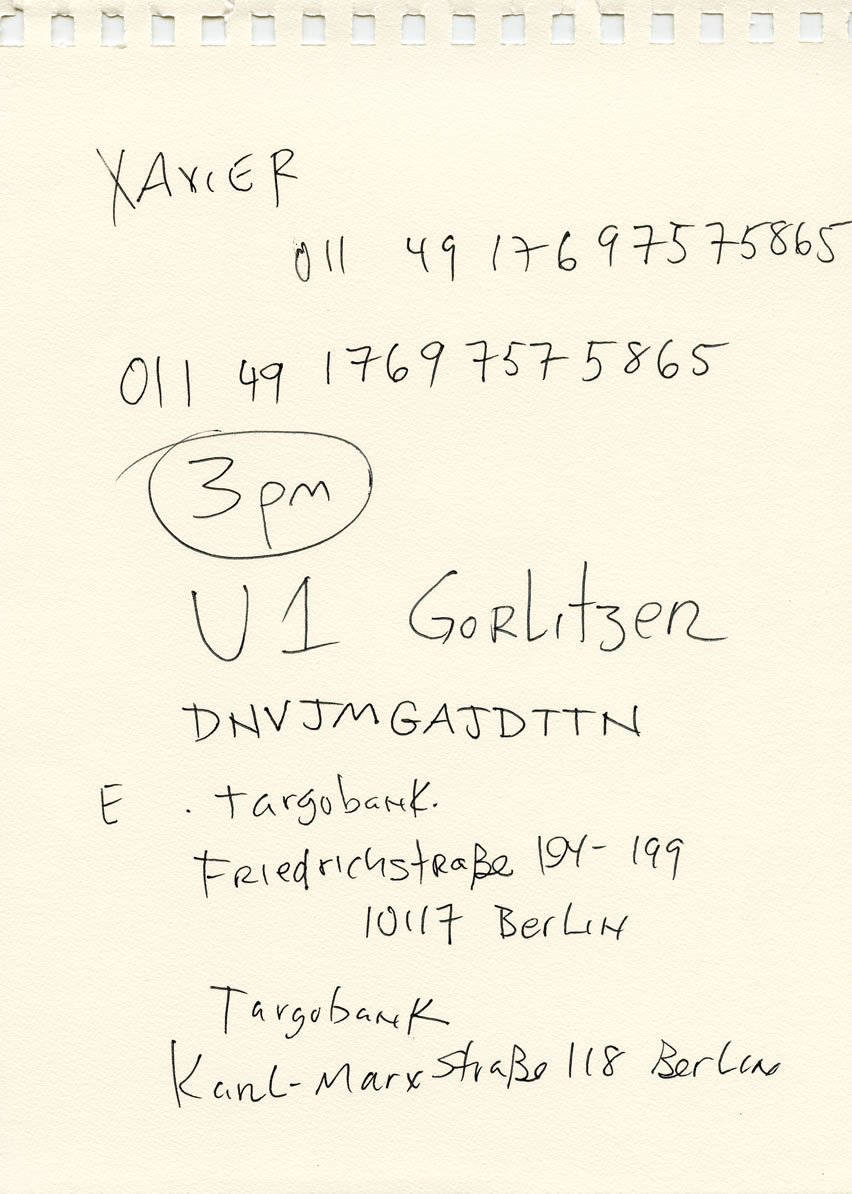 XAVIER
011 49 176 97575865
011 49 1769 757 5865
3pm
U1 GORLitzer
DNVJMGAJDTTN
E . targobank.
FRIedrichstraße 194- 199
10117 BerLIN
Targobank
KarL-Marxstraße 118 BerLin